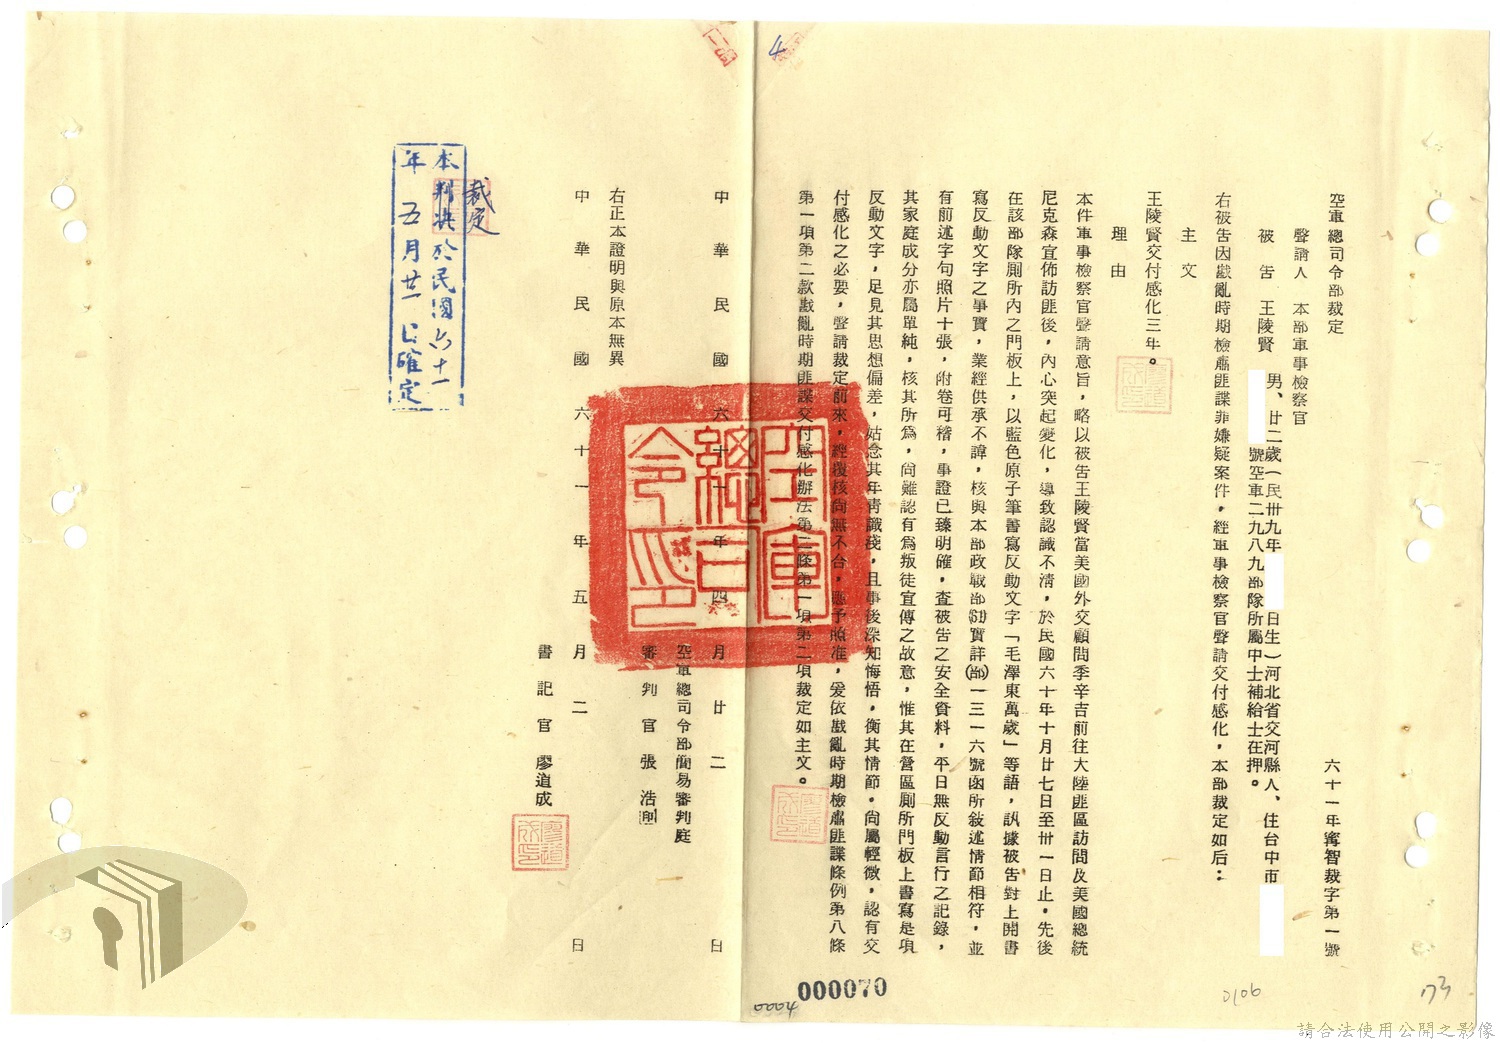 空軍總司令部裁定
六十一年寗智裁字第一號
聲請人 本部軍事檢察官
被告 王陵賢 男、廿二歲(民卅九年 日生)河北省交河縣人、住台中市
號空軍二九八九部隊所屬中士補給士在押。
右被告因戡亂時期檢肅匪諜罪嫌疑案件,經軍事檢察官聲請交付感化,本部裁定如后:
主文
王陵賢交付感化三年。
理由
本件軍事檢察官聲請意旨,略以被告王陵賢當美國外交顧問季辛吉前往大陸匪區訪問及美國總統
尼克森宣佈訪匪後,內心突起變化,導致認識不清,於民國六十年十月廿七日至卅一日止,先後
在該部隊厠所內之門板上,以藍色原子筆書寫反動文字「毛澤東萬歲」等語,訊據被告對上開書
寫反動文字之事實,業經供承不諱,核與本部政戰部(61)實詳(部)一三一六號函所敘述情節相符,並
有前述字句照片十張,附卷可稽,事證已臻明確,查被告之安全資料,平日無反動言行之記錄,
其家庭成分亦屬單純,核其所為,尚難認有為叛徒宣傳之故意,惟其在營區厠所門板上書寫是項
反動文字,足見其思想偏差,姑念其年靑識淺,且事後深知悔悟,衡其情節,尚屬輕微,認有交
付感化之必要,聲請裁定前來,經覆核尚無不合,應予照准,爰依戡亂時期檢肅匪諜條例第八條
第一項第二款戡亂時期匪諜交付感化辦法第二條第一項第二項裁定如主文。
中華民國六十一年四月廿二日
空軍總司令部簡易審判庭
審判官 張浩
右正本證明與原本無異
中華民國六十一年五月二日
書記官 廖道成
裁定
本判決於民國六十一
年五月廿一日確定
空軍總司令印
4
000070
0004
0106
173
請合法使用公開之影像